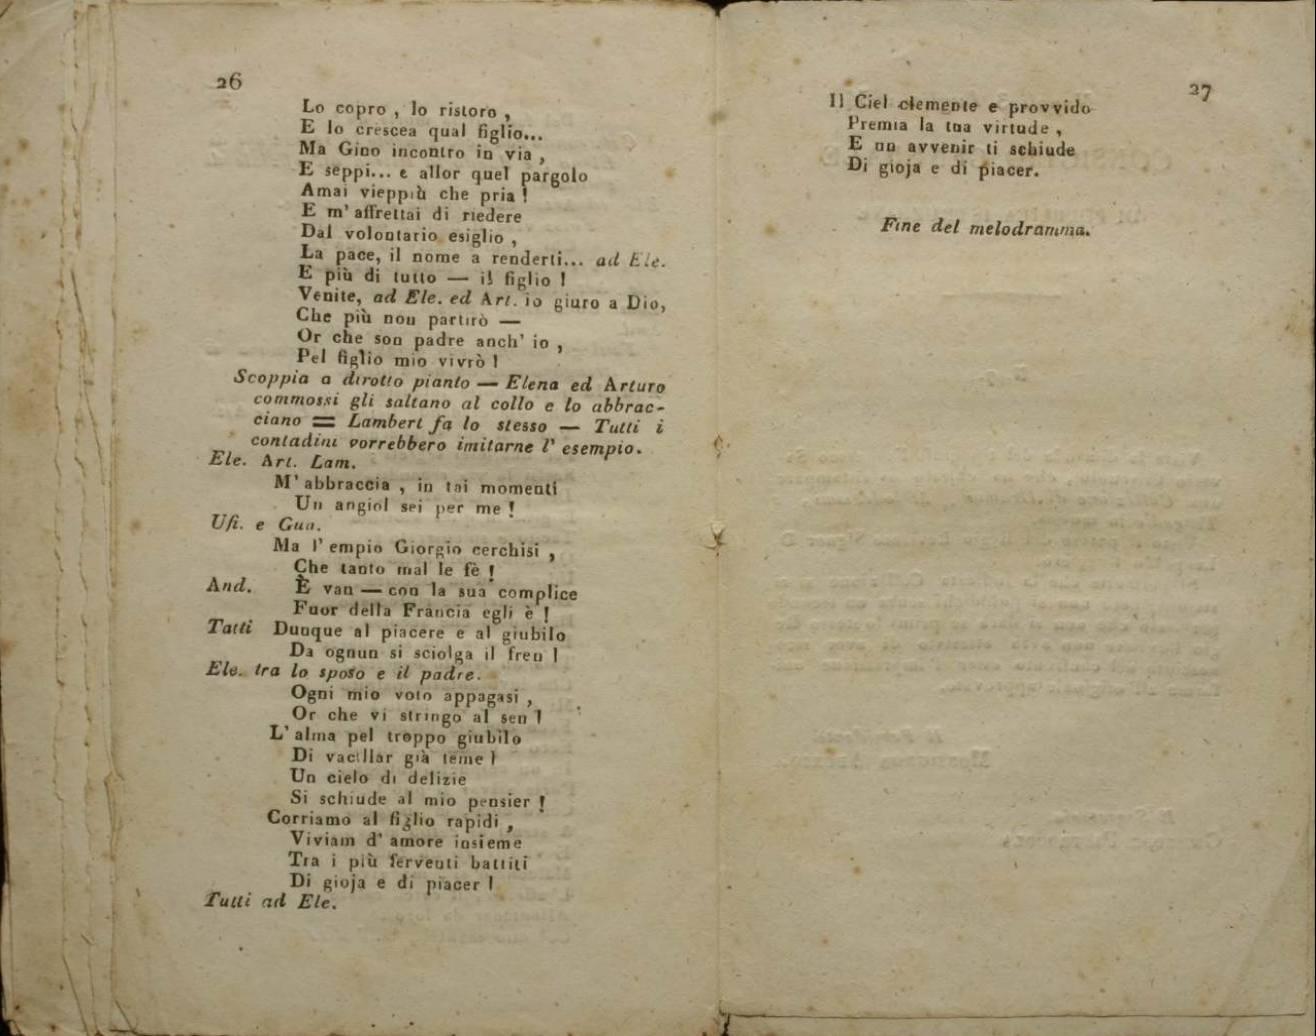 26
Lo copro , lo ristoro ,
E lo crescea qual figlio...
Ma Gino incontro in via ,
E seppi... e allor quel pargolo
Amai vieppiù che pria !
E m' affrettai di riedere
Dal volontario esiglio ,
La pace, il nome a renderti... ad Ele.
E più di tutto — il figlio !
Venite, ad Ele. ed Art. io giuro a Dio,
Che più non partirò —
Or che son padre anch' io ,
Pel figlio mio vivrò !
Scoppia a dirotto pianto — Elena ed Arturo
commossi gli saltano al collo e lo abbrac-
ciano = Lambert fa lo stesso — Tutti i
contadini vorrebbero imitarne l' esempio.
Ele. Art. Lam.
M' abbraccia , in tai momenti
Un angiol sei per me !
Ufi. e Gua.
Ma l' empio Giorgio cerchisi ,
Che tanto mal le fè !
And. È van — con la sua complice
Fuor della Francia egli è !
Tutti Dunque al piacere e al giubilo
Da ognun si sciolga il fren !
Ele. tra lo sposo e il padre.
Ogni mio voto appagasi ,
Or che vi stringo al sen !
L' alma pel troppo giubilo
Di vacillar già teme !
Un cielo di delizie
Si schiude al mio pensier !
Corriamo al figlio rapidi ,
Viviam d' amore insieme
Tra i più ferventi battiti
Di gioja e di piacer !
Tutti ad Ele.
27
Il Ciel clemente e provvido
Premia la tua virtude ,
E un avvenir ti schiude
Di gioja e di piacer.
Fine del melodramma.